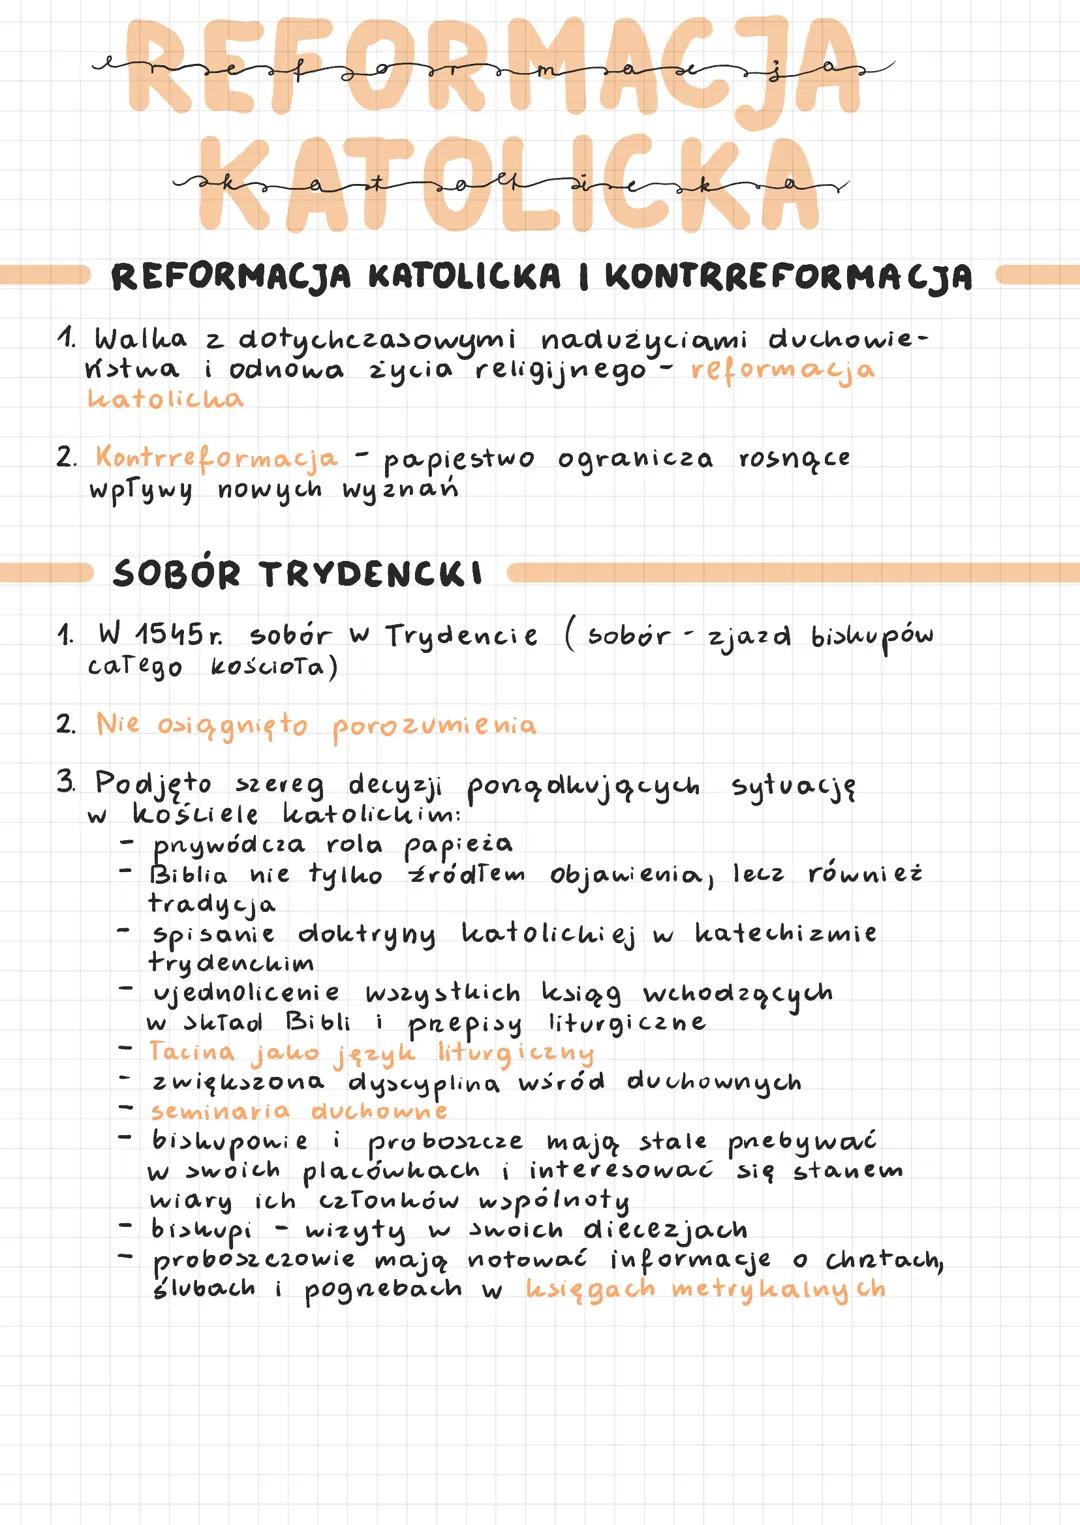 REFORMACJA
reformacja
KATOLICKA
katolicka
REFORMACJA KATOLICKA I KONTRREFORMACJA
1. Walka z dotychczasowymi nadużyciami duchowie-
ństwa i odnowa życia religijnego - reformacja
katolicka
2. Kontrreformacja - papiestwo ogranicza rosnące
wpływy nowych wyznań
SOBÓR TRYDENCKI
1. W 1545r. sobór w Trydencie (sobór - zjazd biskupów
całego kościoła)
2. Nie osiągnięto porozumienia
3. Podjęto szereg decyzji porządkujących sytuację
w kościele katolickim:
- przywódcza rola papieża
- Biblia nie tylko źródłem objawienia, lecz również
tradycja
- spisanie doktryny katolickiej w katechizmie
trydenckim
- ujednolicenie wszystkich ksiąg wchodzących
w skład Bibli i przepisy liturgiczne
- łacina jako język liturgiczny
- zwiększona dyscyplina wśród duchownych
- seminaria duchowne
- biskupowie i proboszcze mają stale przebywać
w swoich placówkach i interesować się stanem
wiary ich członków wspólnoty
- biskupi - wizyty w swoich diecezjach
- proboszczowie mają notować informacje o chrztach,
ślubach i pogrzebach w księgach metrykalnych